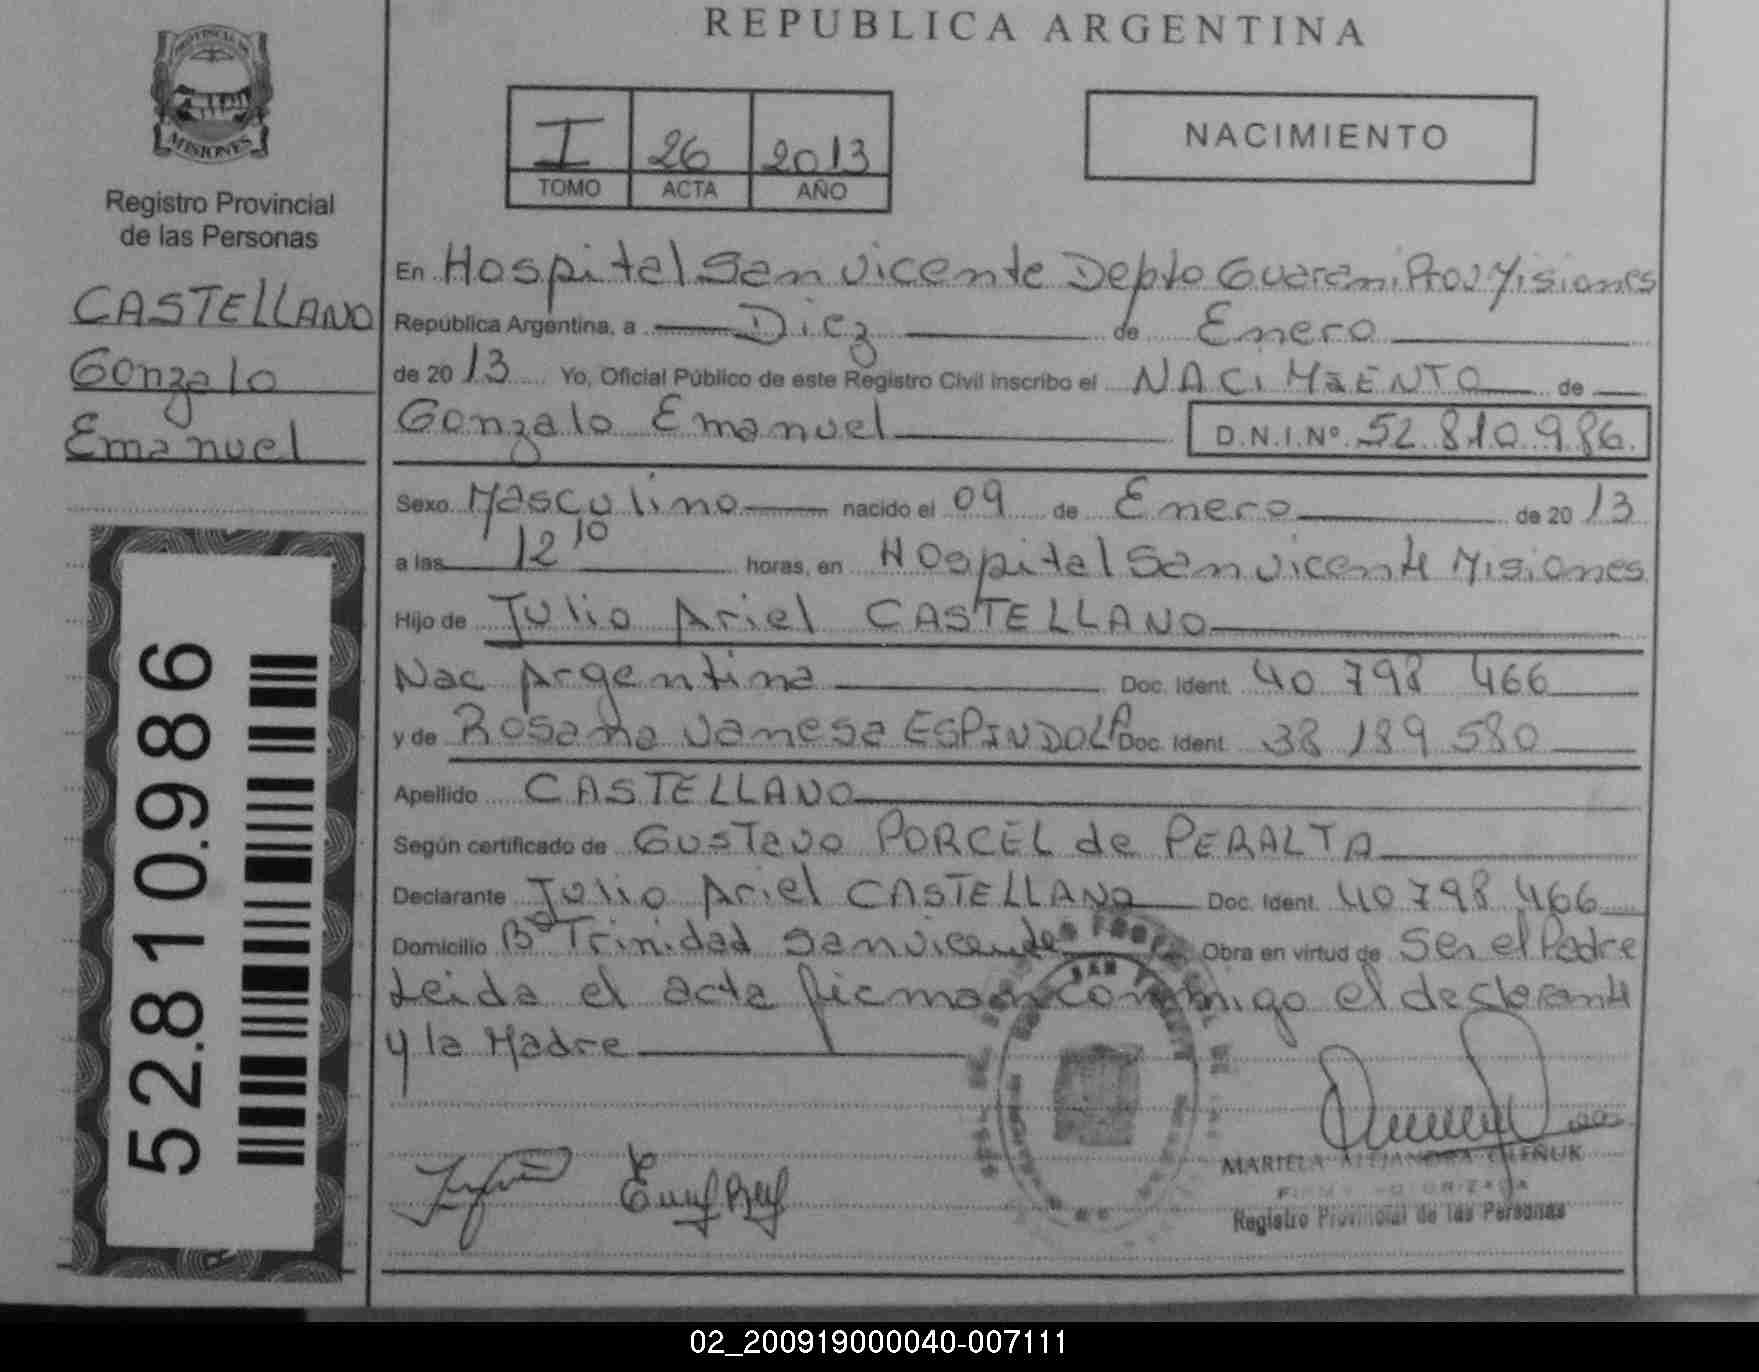 REPUBLICA ARGENTINA
MISIONES
Registro Provincial
de las Personas
CASTELLANO
Gonzalo
Emanuel
52.810.986
I 26 2013
TOMO ACTA AÑO
NACIMIENTO
En Hospital San Vicente Depto Guarani Prov Misiones
República Argentina, a Diez de Enero
de 2013 Yo, Oficial Público de este Registro Civil inscribo el NACIMIENTO de
Gonzalo Emanuel D.N.I.Nº 52.810.986.
Sexo Masculino nacido el 09 de Enero de 2013
a las 12 10 horas, en Hospital San Vicente Misiones
Hijo de Julio Ariel CASTELLANO
Nac Argentina Doc. Ident. 40 798 466
y de Rosana Vanesa ESPINDOLA Doc. Ident. 38 189 580
Apellido CASTELLANO
Según certificado de Gustavo PORCEL de PERALTA
Declarante Julio Ariel CASTELLANO Doc. Ident. 40 798 466
Domicilio Bº Trinidad San Vicente Obra en virtud de Ser el Padre
Leida el acta firman conmigo el declarante
y la Madre
MARIELA ALEJANDRA
FIRMA AUTORIZADA
Registro Provincial de las Personas
02_200919000040-007111